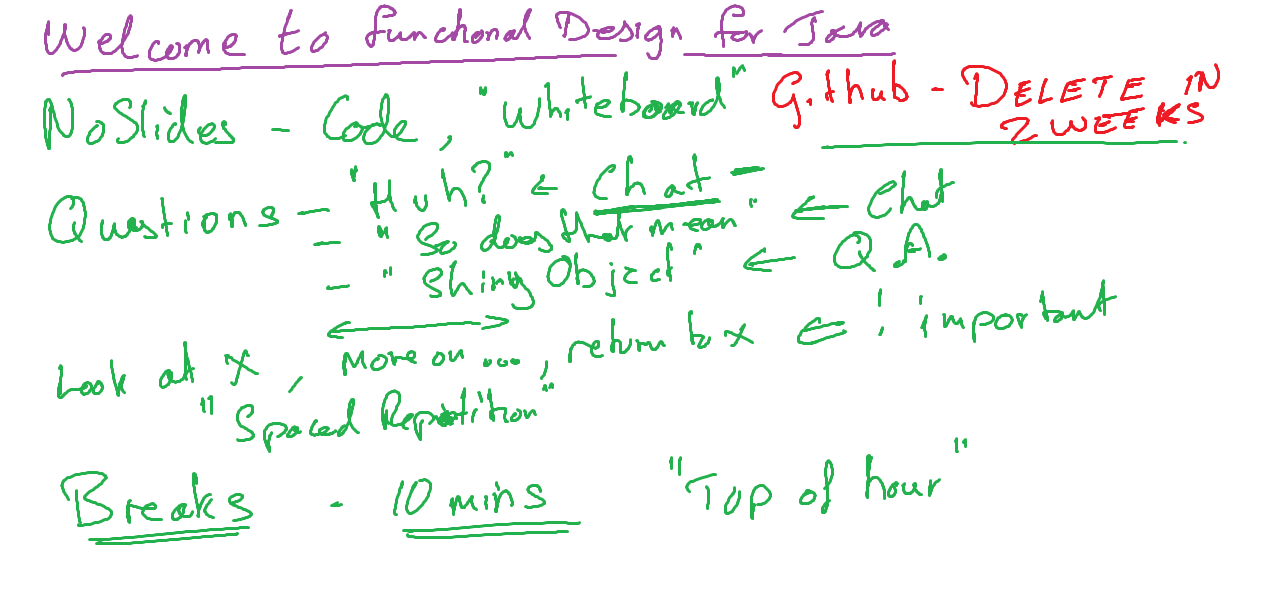 Welcome to Functional Design for Java
NoSlides - Code, "Whiteboard"
Github - DELETE IN
2 WEEKS
Questions - "Huh?" ← Chat -
- "So does that mean" ← Chat
- "Shiny Object" ← Q.A.
Look at X, More on ..., return to X ← ! important
"Spaced Repetition"
Breaks - 10 mins "Top of hour"